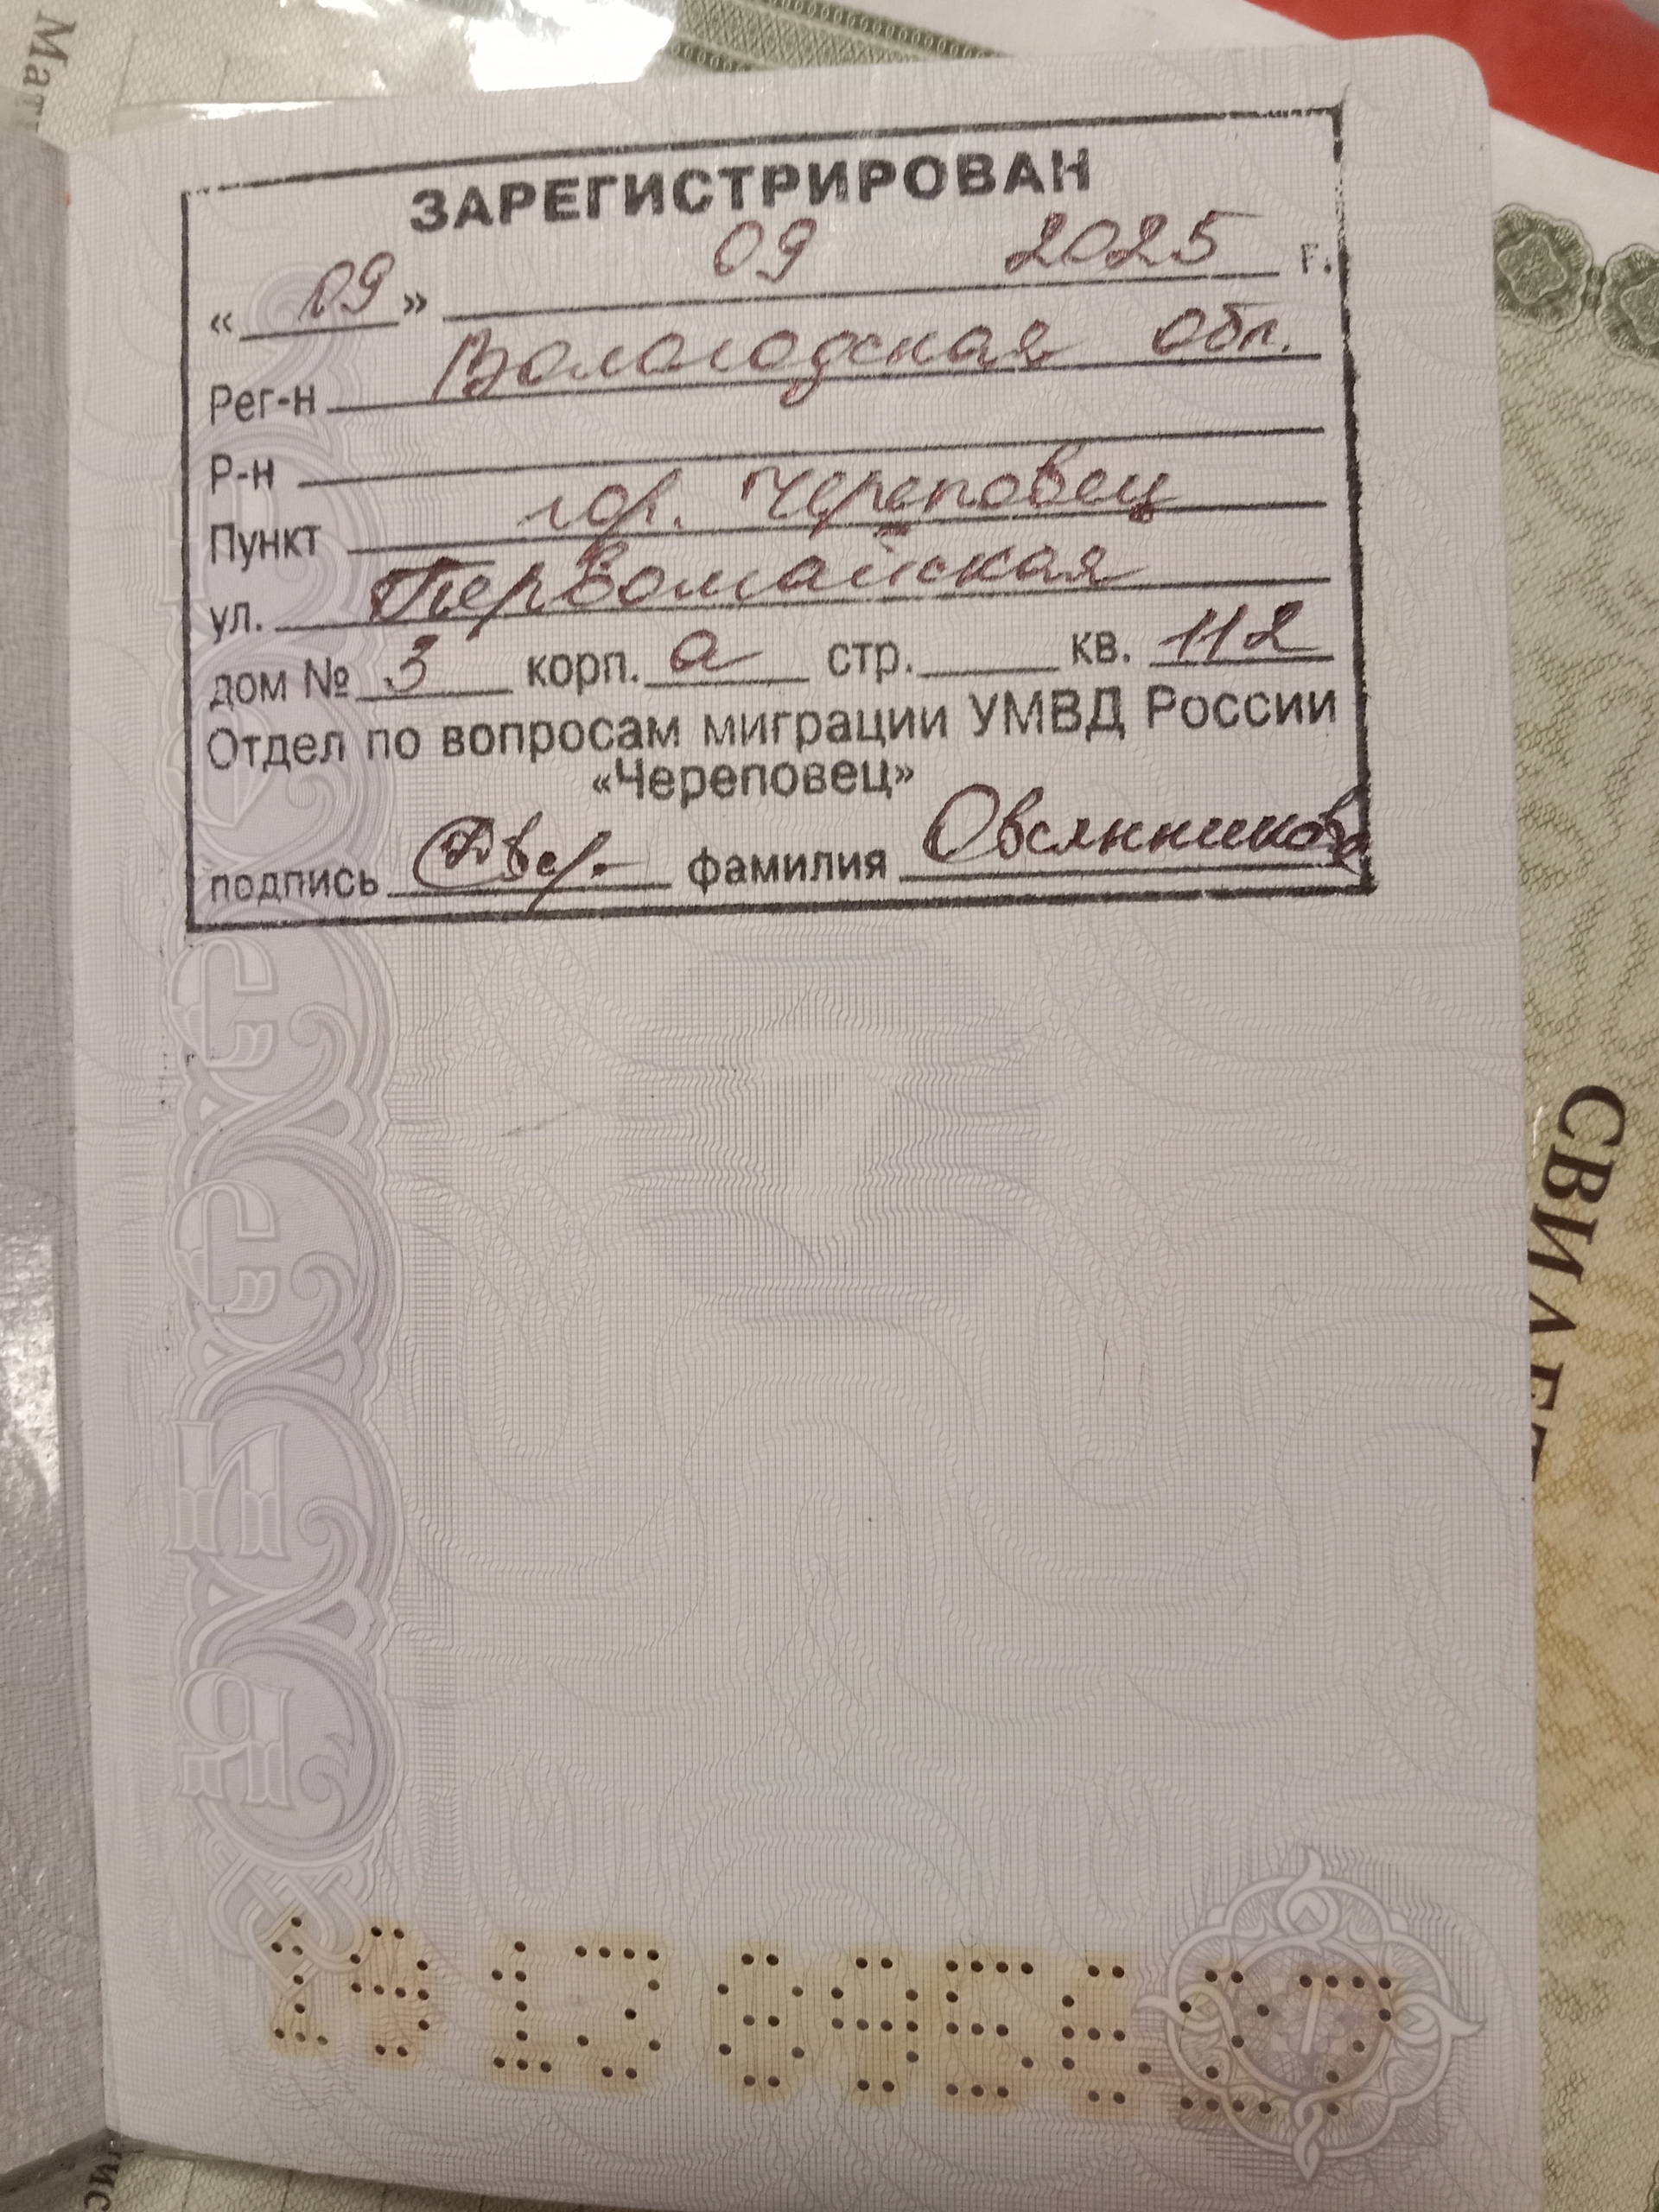 ЗАРЕГИСТРИРОВАН
« 09 » 09 2025 г.
Рег-н Вологодская обл.
Р-н
Пункт гор. Череповец
ул. Первомайская
дом № 3 корп. а стр. кв. 112
Отдел по вопросам миграции УМВД России
«Череповец»
подпись фамилия Овсянникова
19 13 8956 27